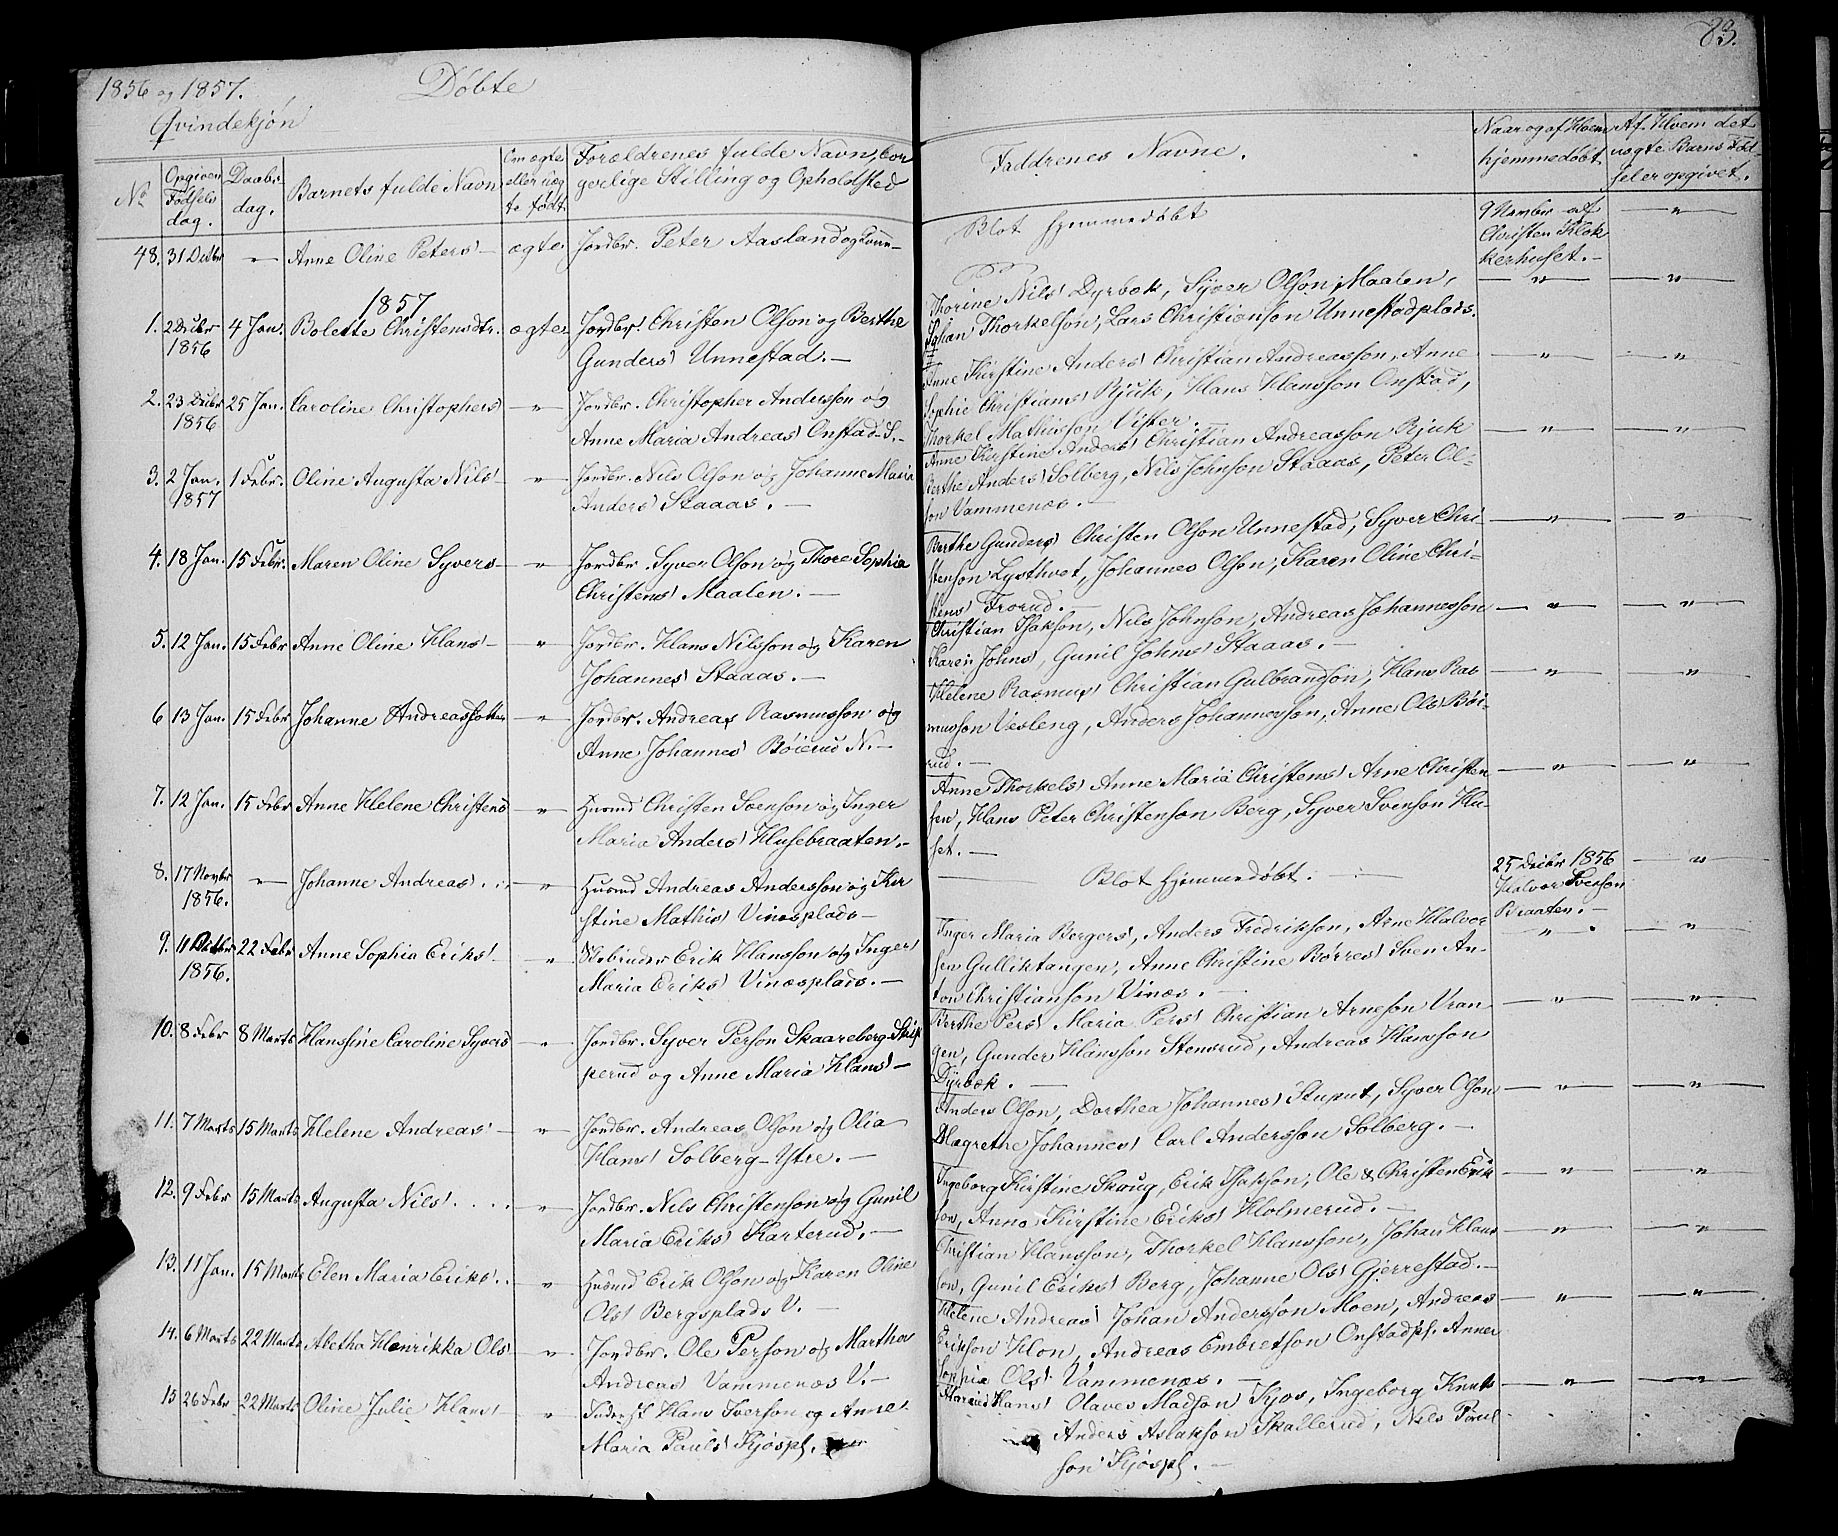 1856 og 1857. Döbte 83.
Qvindekjön
No
Opgiven Födselsdag.
Daabsdag.
Barnets fulde Navn
Om ægte eller uægte födt.
Forældrenes fulde Navn, borgerlige Stilling og Opholdsted
Faddrenes Navne.
Naar og af Hvem hjemmedöbt.
Af Hvem det uægte Barns Födsel er opgivet.
48. 31 Decbr — " — Anne Oline Peters — ægte Jordbr. Peter Aasland og
Blot hjemmedöbt
af Christen Klokkerhuset. —
1857
1. 2 Decbr 1856 4 Jan. Bolette Christensdtr. ægte Jordbr. Christen Olson og Berthe
Gunders Unnestad. —
Thorine Nils Dyrbæk, Syver Olson Maalen,
Johan Thorkelson, Lars Christianson Unnestadplads.
2. 23 Decbr 1856 25 Jan. Caroline Christophers — " — Jordbr. Christopher Andersson og
Anne Maria Andreas Onstad S. —
Anne Kirstine Anders Christian Andreasson, Anne
Sophie Christians Rjuk, Hans Hansson Onstad,
Thorkel Mathisson Vister.
3. 2 Jan. 1857 1 Febr. Oline Augusta Nils — " — Jordbr. Nils Olson og Johanne Maria
Anders Staaas. —
Anne Kirstine Anders Christian Andreasson Rjuk
Berthe Anders Solberg, Nils Johnson Staaas, Peter Ol-
son Vammenæs. —
4. 18 Jan. 15 Febr. Maren Oline Syvers — " — Jordbr. Syver Olson og Thore Sophia
Christens Maalen. —
Berthe Gunders Christen Olson Unnestad, Syver Chri-
stenson Lysthvet, Johannes Olson, Karen Oline Chri-
stens Frorud. —
5. 12 Jan. 15 Febr Anne Oline Hans — " — Jordbr. Hans Nilsson og Karen
Johannes Staaas. —
Christian Isakson, Nils Johnson, Andreas Johannesson
Karen Johns, Gunil Johns Staaas. —
6 13 Jan. 15 Febr Johanne Andreasdatter — " — Jordbr. Andreas Rasmusson og
Anne Johannes Böierud N. —
Helene Rasmus Christian Gulbrandson, Hans Ras
musson Vesleng, Anders Johannesson, Anne Ols Böi-
rud. —
7. 12 Jan. 15 Febr Anne Helene Christens — " — Husmd Christen Svenson og Inger
Maria Anders Husebraaten. —
Anne Thorkels Anne Maria Christens Arne Christen
sen, Hans Peter Christenson Berg, Syver Svenson Hu-
set. —
8. 17 Novbr 1856. — " — Johanne Andreas — " — Husmd Andreas Andersson og Kir
stine Mathis Vinæsplads —
Blot hjemmedöbt. —
25 Decbr 1856
Halvor Svenson
Braaten. —
9. 11 Decbr 1856. 22 Febr Anne Sophia Eriks — " — Erik Hansson og Inger
Maria Eriks Vinæsplads. —
Inger Maria Bergers, Anders Fredrikson, Arne Halvor
sen Gulliktangen, Anne Christine Börres Sven An-
ton Christianson Vinæs. —
10. 8 Febr 8 Marts Hanssine Caroline Syvers — " — Jordbr. Syver Person Skaareberg Skip
perud og Anne Maria Hans —
Berthe Pers Maria Pers Christian Arneson Vran
gen, Gunder Hansson Stensrud, Andreas Hansson
Dyrbæk. —
11. 7 Marts 15 Marts Helene Andreas — " — Jordbr. Andreas Olson og Olia
Hans Solberg-Ytre. —
Anders Olson, Dorthea Johannes Stuput, Syver Olson
Magrethe Johannes Carl Andersson Solberg. —
12. 9 Febr 15 Marts Augusta Nils — " — Jordbr. Nils Christenson og Gunil
Maria Eriks Karterud. —
Ingeborg Kirstine Skaug, Erik Isakson, Ole & Christen Erik
son, Anne Kirstine Eriks Holmerud. —
13. 11 Jan. 15 Marts Elen Maria Eriks — " — Husmd Erik Olson og Karen Oline
Ols Bergsplads V. —
Christian Hansson, Thorkel Hansson, Johan Hans
son, Gunil Eriks Berg, Johanne Ols Gjerrestad. —
14. 6 Marts 22 Marts Aletha Henrikka Ols — " — Jordbr. Ole Person og Marthe
Andreas Vammenæs V. —
Helene Andreas Johan Andersson Moen, Andreas
Erikson Klon, Andreas Embretson Onstadpl. Anne
Sophia Ols Vammenæs. —
15 26 Febr 22 Marts Oline Julie Hans — " — Hans Iverson og Anne
Maria Pauls Kjöspl.
Hans Olaves Madson Kjös, Ingeborg Knuts
Anders Aslakson Skallerud, Nils Paul
son Kjöspl. —